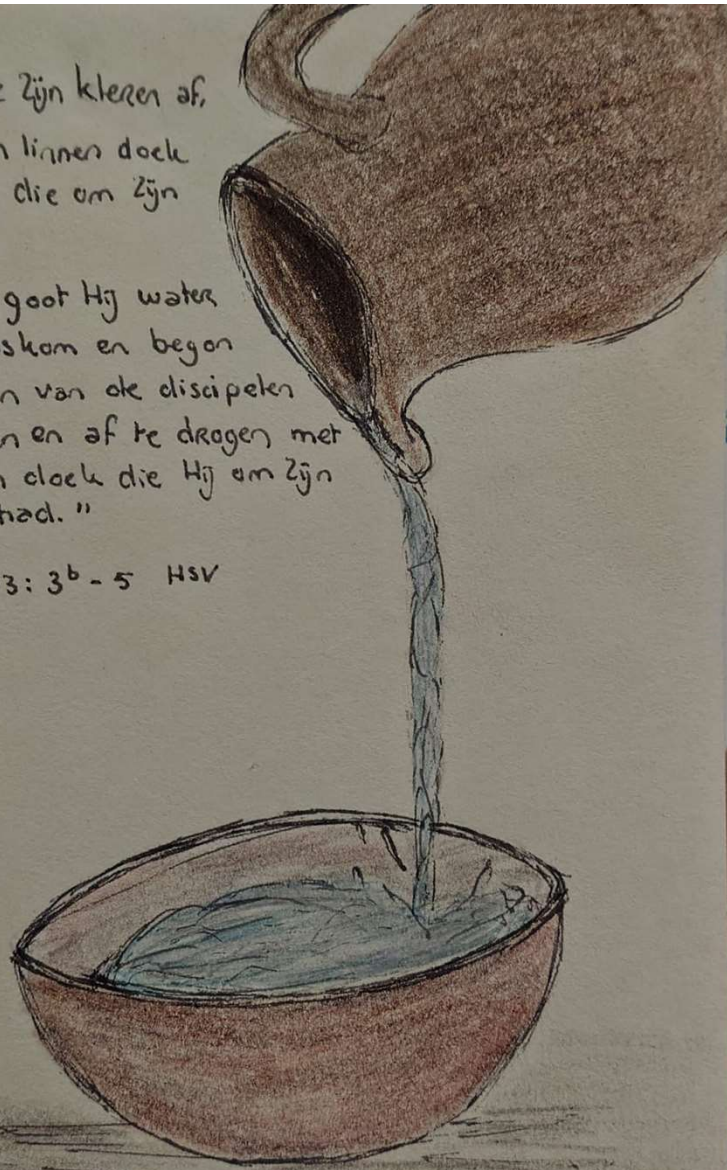 Zijn kleren af,
linnen doek
die om Zijn
goot Hij water
en begon
van de discipelen
en af te drogen met
doek die Hij om Zijn
had."
3: 3b - 5 HSV